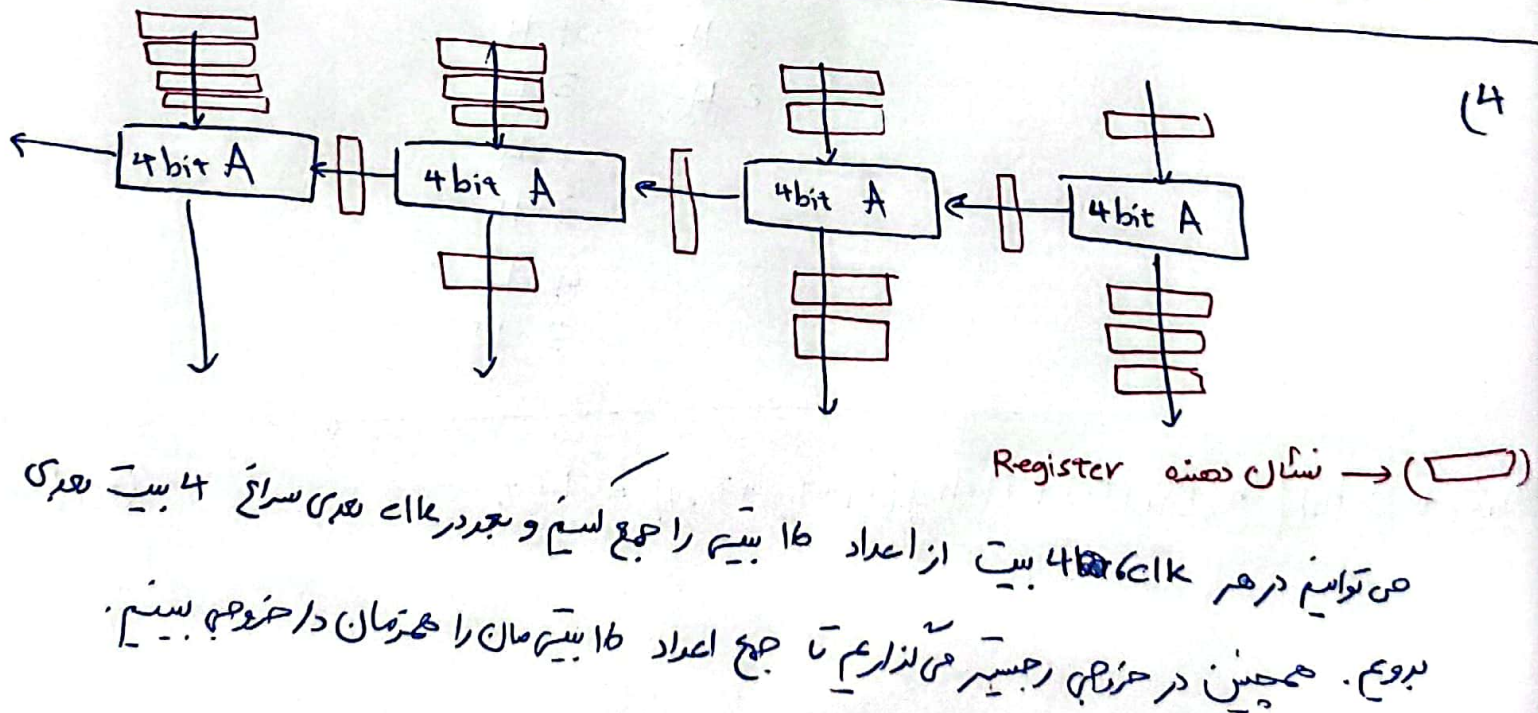 (4
4 bit A
4 bit A
4 bit A
4 bit A
(▭) → نشان دهنده Register
می توانیم در هر clk 4 بیت از اعداد 16 بیتی را جمع کنیم و بعد در clk بعدی سراغ 4 بیت بعدی
برویم. همچنین در خروجی رجیستر می گذاریم تا جمع اعداد 16 بیتی مان را همزمان در خروجی ببینیم.